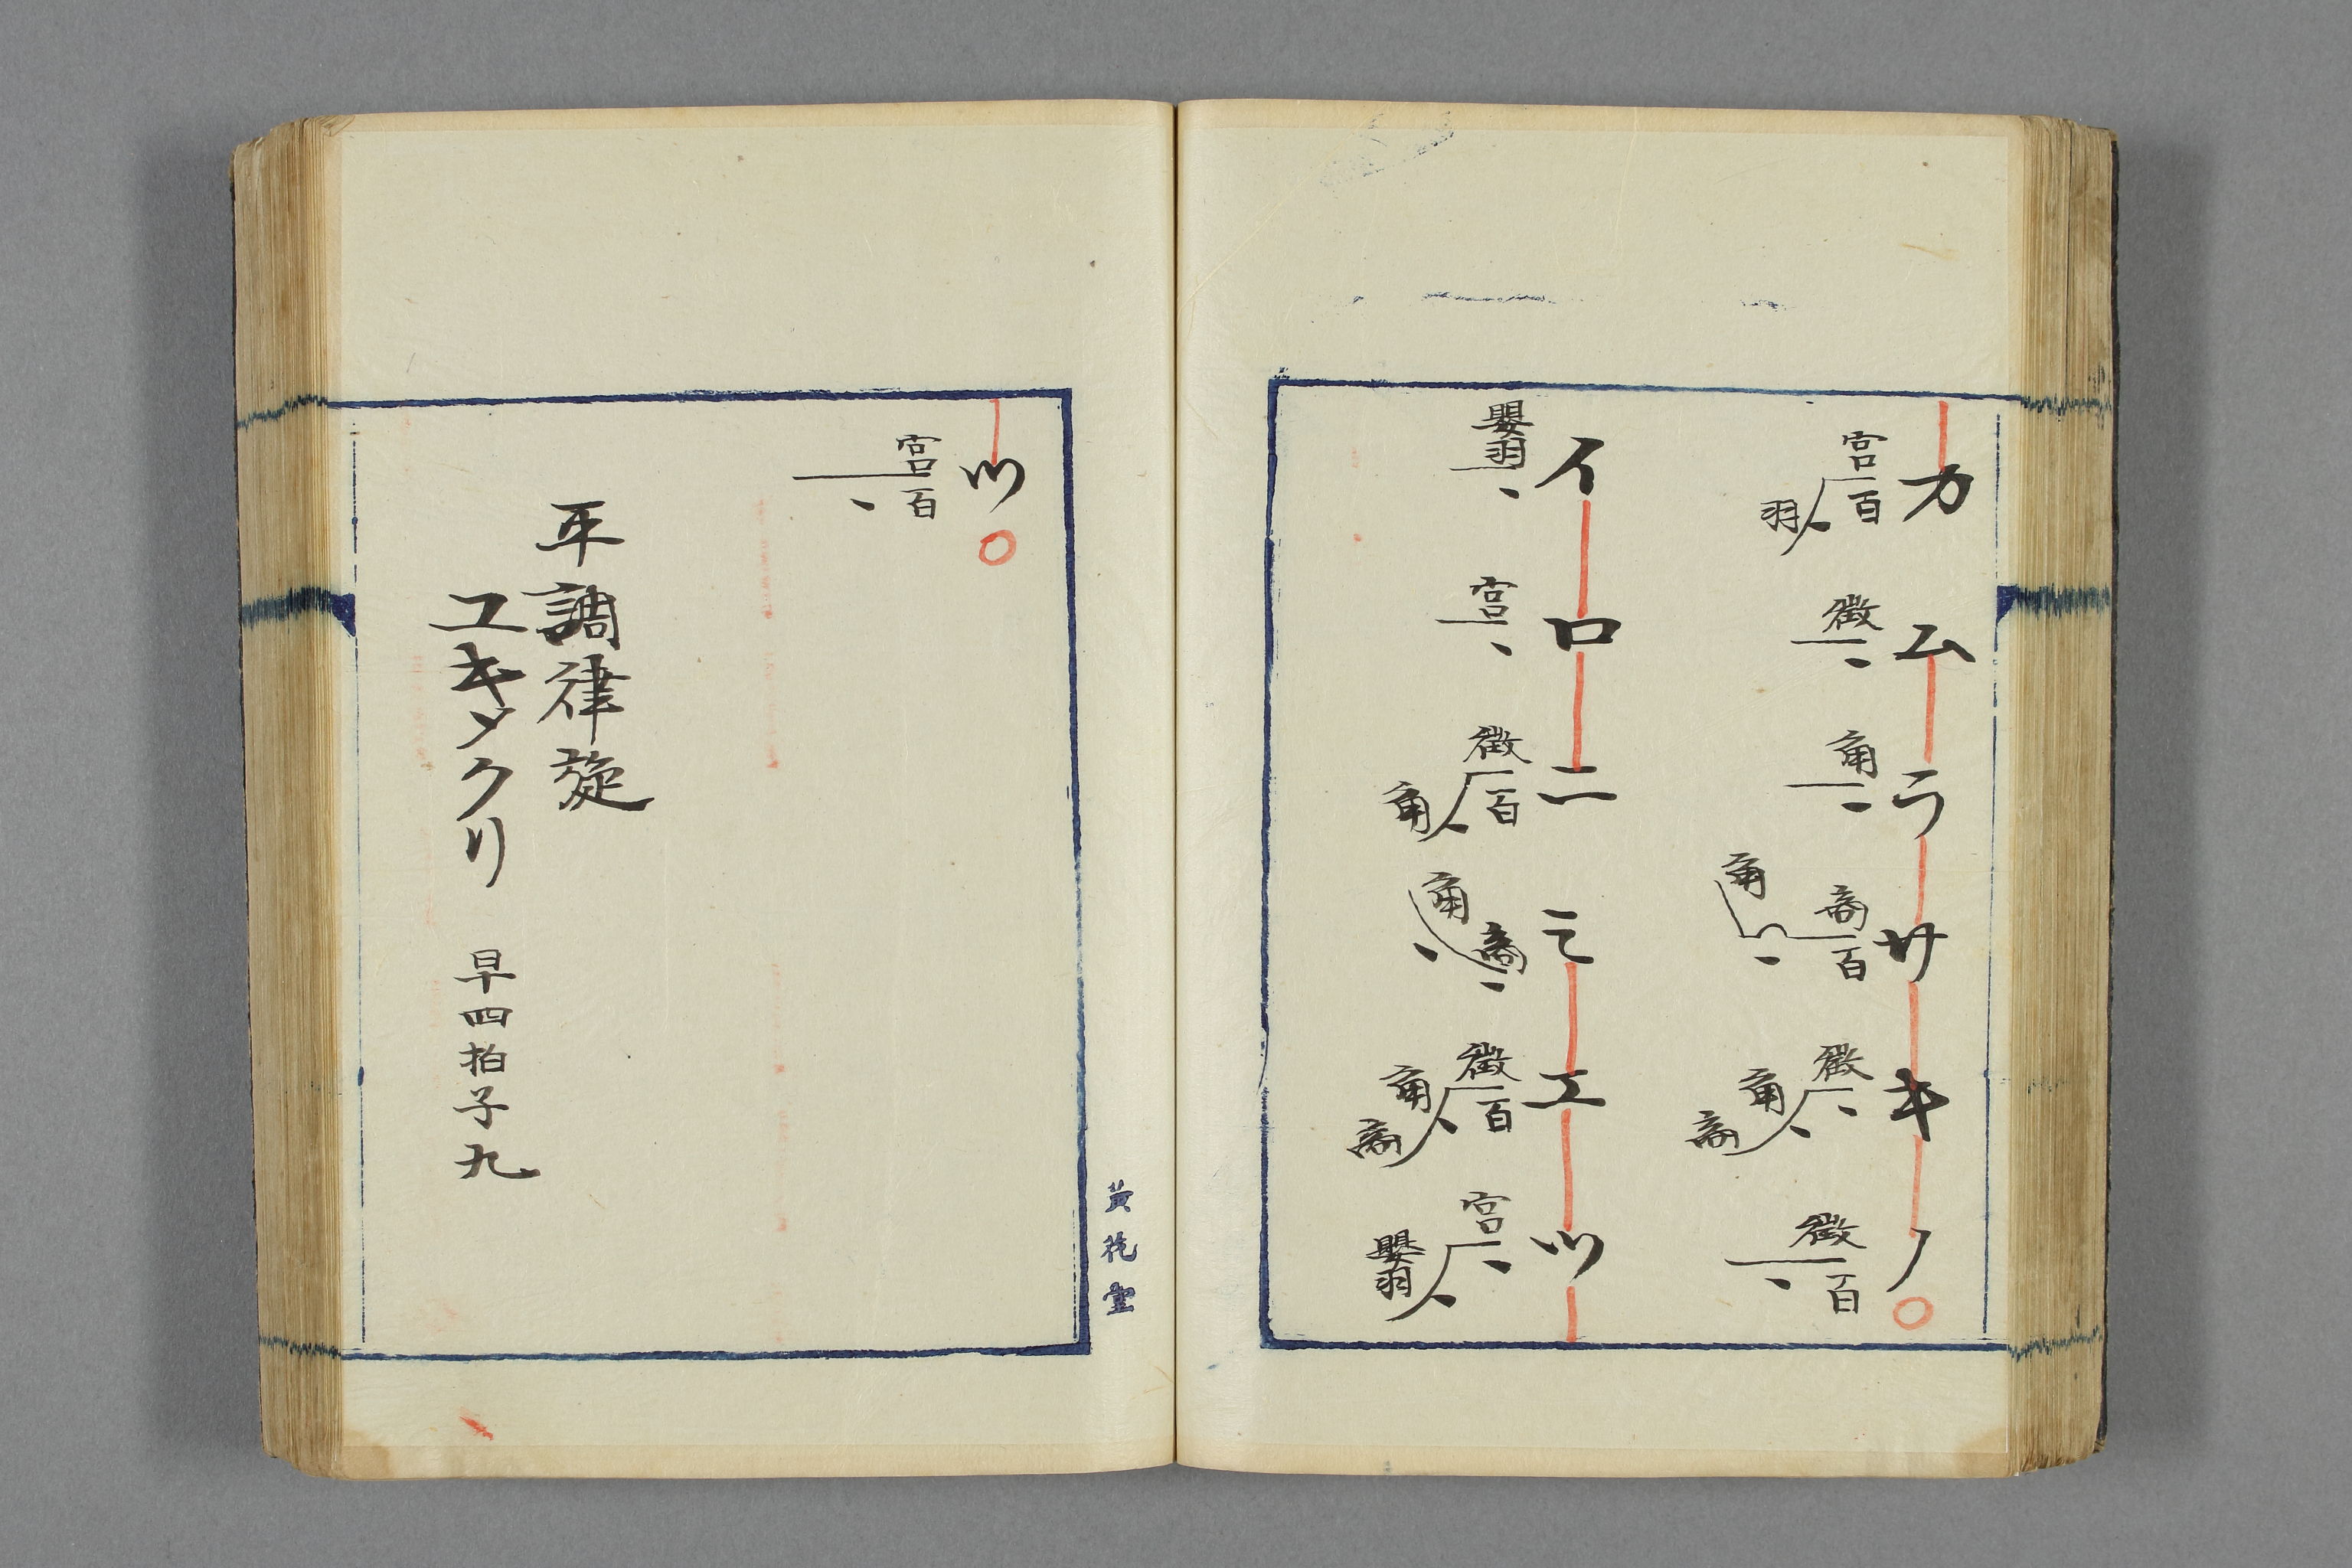 カムラサキノ○
宮百羽 徴 角 商百角 徴角商 徴百
イロニミエツ
嬰羽 宮 徴百角 商角 徴百角商 宮嬰羽
ツ○
宮百
平調律旋
ユキメクリ 早四拍子九